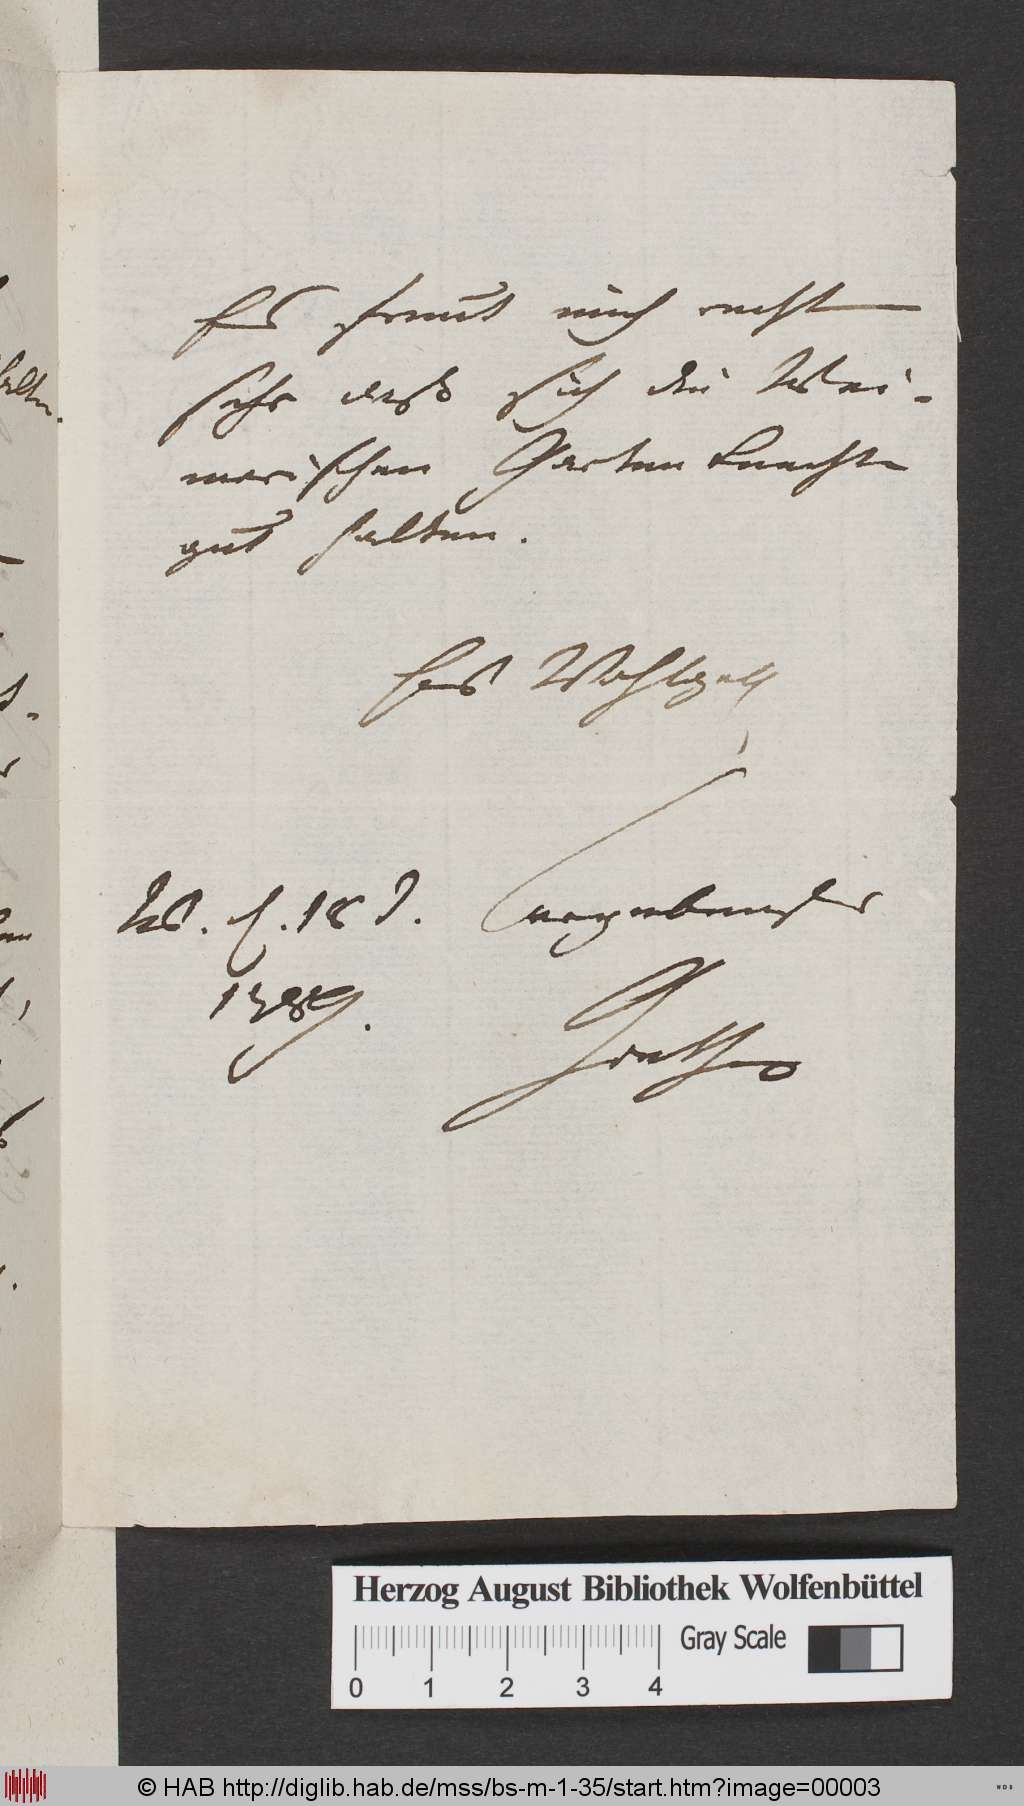 Es freut mich recht
sehr daß sich die Wei-
marischen Garten Knechte
gut halten.
Ew Wohlgeb
W. d. 18 S.
ergebenster
1789.
Goethe
Herzog August Bibliothek Wolfenbüttel
Gray Scale
0 1 2 3 4
© HAB http://diglib.hab.de/mss/bs-m-1-35/start.htm?image=00003